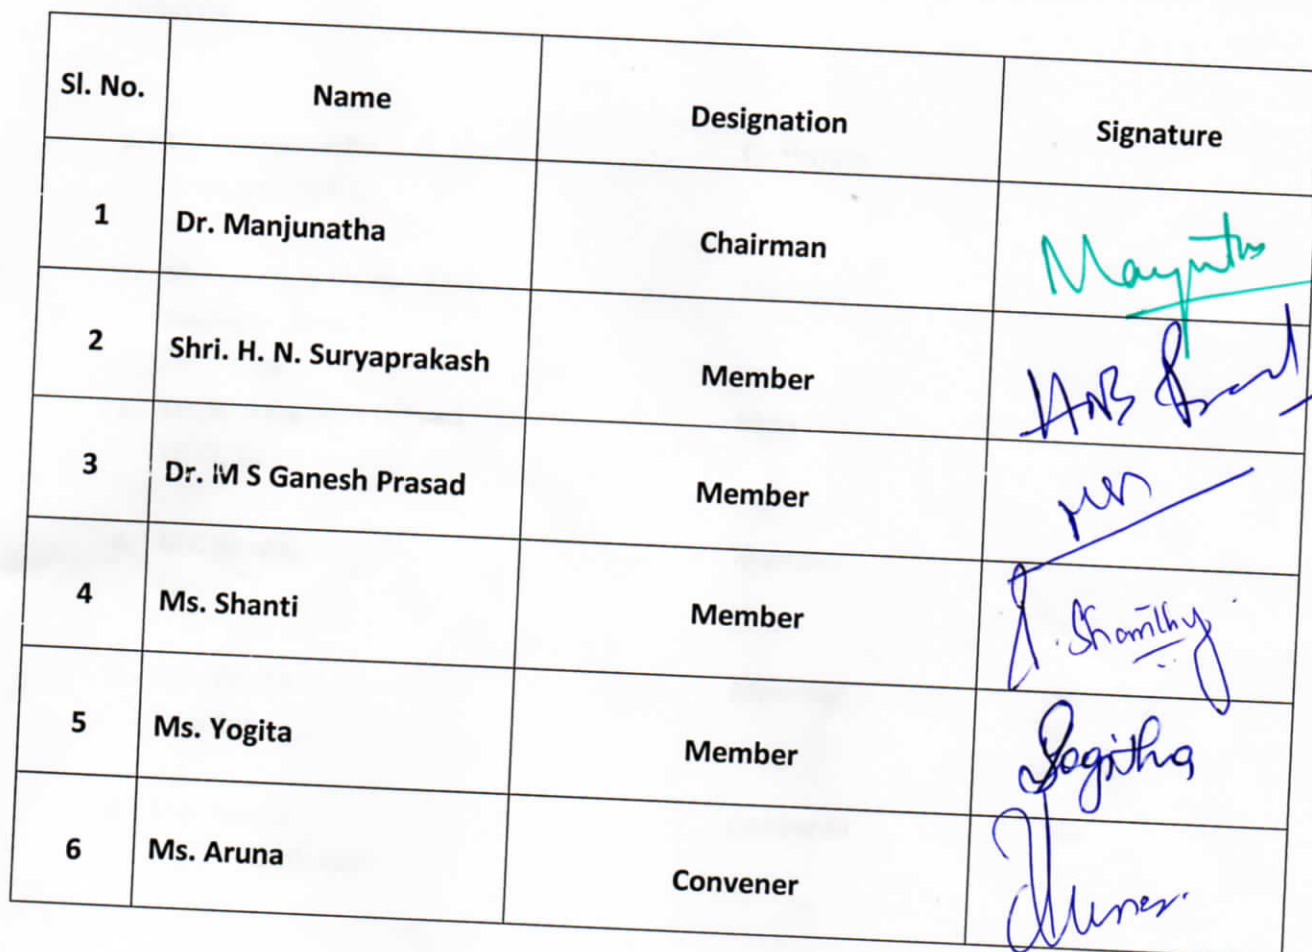 Sl. No. Name Designation Signature
1 Dr. Manjunatha Chairman Manjunatha
2 Shri. H. N. Suryaprakash Member
3 Dr. M S Ganesh Prasad Member
4 Ms. Shanti Member J. Shanthy
5 Ms. Yogita Member Yogitha
6 Ms. Aruna Convener